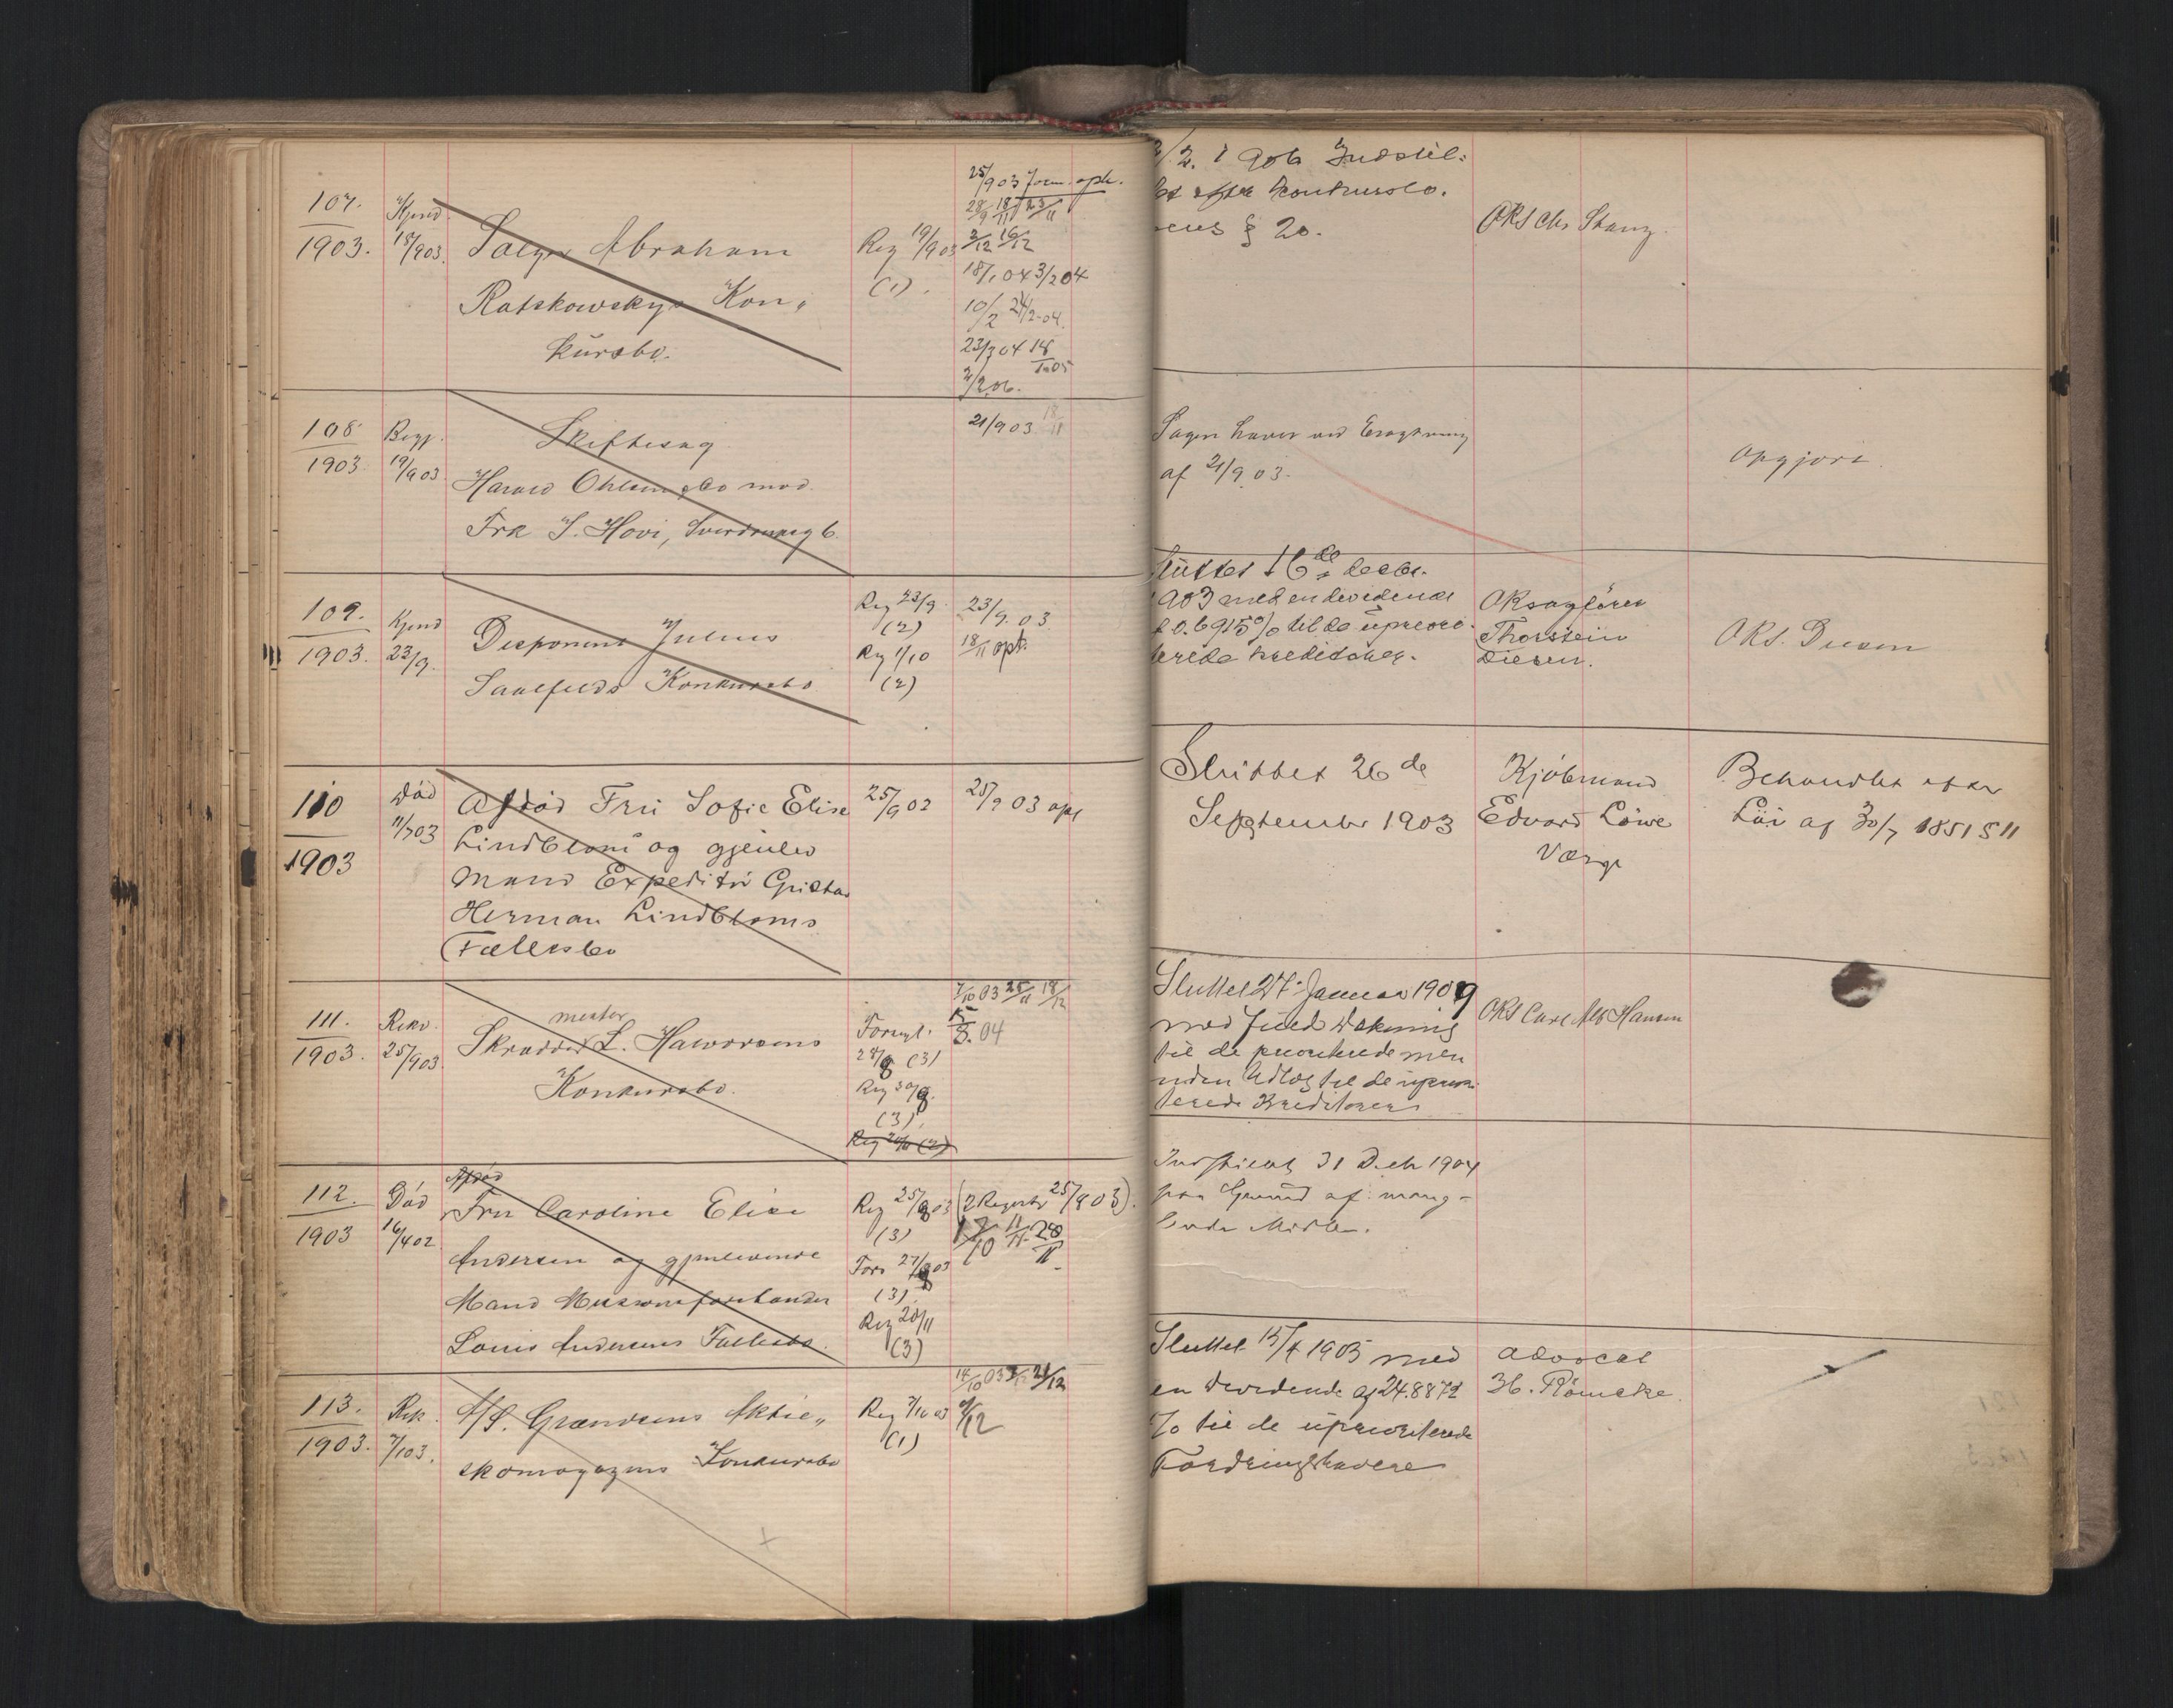 107.
1903.
Kjend
18/9 03.
Sælger Abraham
Ratskowskys Kon„
kursbo.
Reg 19/9 03
(1).
25/9 03 Form. oph.
28/9 18/11 23/11
2/12 16/12
18/1 04 3/2 04
10/2 24/2-04.
23/3 04 18/1-05
2/2 06.
2/2. i 906 Indstil:
Konkurslo.
§ 20.
ORS Chr Stang.
108
1903
Begj.
19/9 03
Skiftesag
Harald Ohlsens bo mod
Frk S. Hovi, Sverdrupsg 6
21/9 03 18/11
Sagen hæves ved Eragtning
af 21/9 03.
Opgjort.
109.
1903.
Kjend
23/9.
Disponent Julius
Saalfelds Konkursbo
Reg 23/9
(2)
Reg 1/10
(2)
23/9. 03
18/11 opt.
Sluttet 16de decbr.
1903 med en dividende
0.6915% til de upriori-
terede kreditorer.
ORsagfører
Thorstein
Diesen.
ORS. Diesen
110
1903
Død
11/7 03
Afdød Fru Sofie Elise
Lindblom og gjenlev
Mand Expeditør Gustav
Herman Lindbloms
Fællesbo
25/9 03
25/9 03 opt
Sluttet 26de
September 1903
Kjøbmand
Edvard Löwe
Værge
Behandlet efter
Lov af 30/7 1851 § 11
111.
1903.
Rekv.
25/9 03
mester
Skrædder L. Halvorsens
Konkursbo.
Foregl.
28/9 (3)
Reg 30/9.
(3).
Reg 20/11 (2)
7/10 03 25/11 18/12
15/3. 04
Sluttet 27. Januar 1909
med fuld Dækning
til de prioriterede men
uden Udlæg til de uprior-
terede Kreditorer
ORS Carl Alb Hansen
112.
1903
Død
16/4 02
Afdød
Fru Caroline Elise
Andersen og gjenlevende
Mand
Louis Andersens Fællesbo.
Reg 25/9 03
(3)
Fors 27/9 03
(3).
Reg 20/11
(3)
(2 Registr 25/9 03).
17/10 11/11 28/11
Indstillet 31 Decb 1904
paa Grund af mang-
lende Midler.
113.
1903.
Rek.
7/10 3.
A/S. Grændsens Aktie„
skomagazins Konkursbo
Reg 7/10 03
(1)
14/10 03 21/12
Sluttet 15/4 1905 med
en dividende af 24.8872
% til de uprioriterede
Fordringshavere
advocat
H. Römcke.